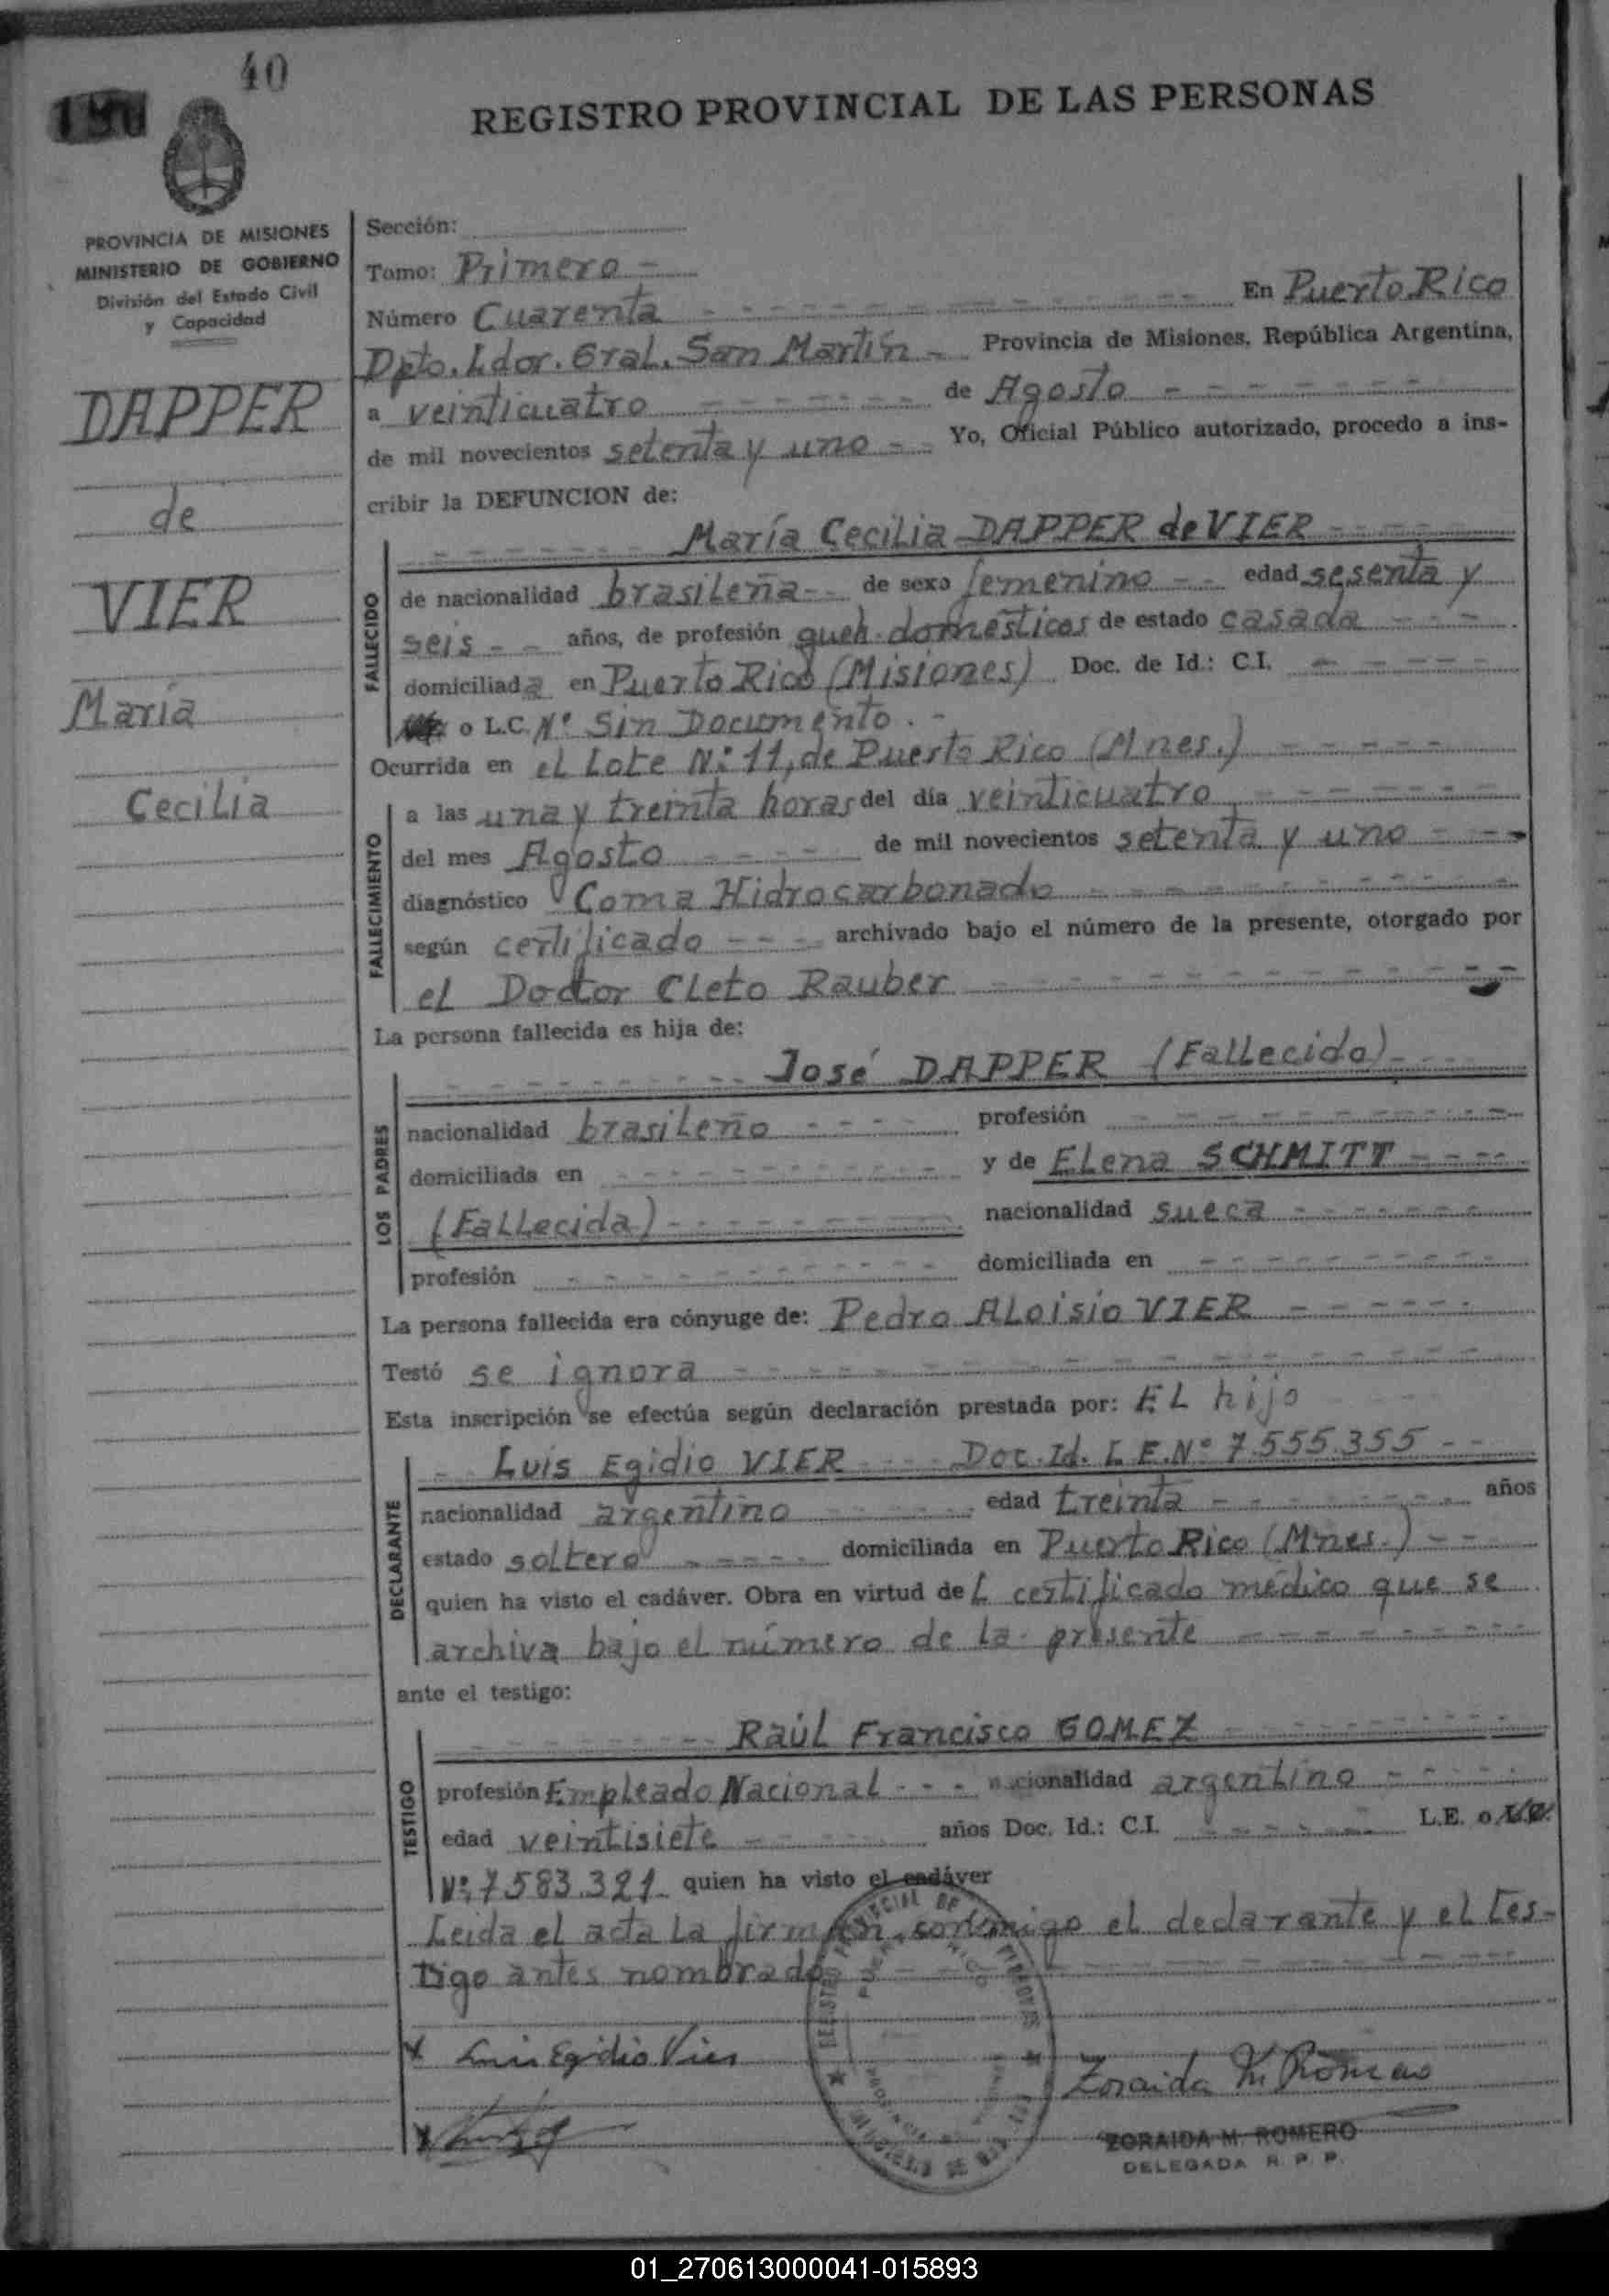 40
REGISTRO PROVINCIAL DE LAS PERSONAS
PROVINCIA DE MISIONES
MINISTERIO DE GOBIERNO
División del Estado Civil
y Capacidad
DAPPER
de
VIER
María
Cecilia
Sección:
Tomo: Primero -
Número Cuarenta - - - - - - - - - - - En Puerto Rico
Dpto. Ldor. Gral. San Martín - Provincia de Misiones, República Argentina,
a veinticuatro - - - - - - - de Agosto - - - - - - -
de mil novecientos setenta y uno - - Yo, Oficial Público autorizado, procedo a ins-
cribir la DEFUNCION de:
- - - - - - María Cecilia DAPPER de VIER - - - - -
FALLECIDO
de nacionalidad brasileña - - de sexo femenino - - edad sesenta y
seis - - años, de profesión queh. domésticos de estado casada - - -
domiciliada en Puerto Rico (Misiones) Doc. de Id.: C.I. - - - - -
o L.C. Nº Sin Documento . -
Ocurrida en el Lote Nº 11, de Puerto Rico (Mnes.) - - - - -
FALLECIMIENTO
a las una y treinta horas del día veinticuatro - - - - - - -
del mes Agosto - - - - de mil novecientos setenta y uno - - -
diagnóstico Coma Hidrocarbonado - - - - - - - - - -
según certificado - - - archivado bajo el número de la presente, otorgado por
el Doctor Cleto Rauber - - - - - - - - - - - -
La persona fallecida es hija de:
- - - - - - - - José DAPPER (Fallecido) - - -
LOS PADRES
nacionalidad brasileño - - - - profesión - - - - - - - - -
domiciliada en - - - - - - - - - y de Elena SCHMITT - - - -
(Fallecida) - - - - - - - nacionalidad sueca - - - - - - -
profesión - - - - - - - - - - domiciliada en - - - - - - - -
La persona fallecida era cónyuge de: Pedro ALoisio VIER - - - - - -
Testó se ignora - - - - - - - - - - - - - - - - -
Esta inscripción se efectúa según declaración prestada por: EL hijo
- - Luis Egidio VIER - - - Doc. Id. L.E. Nº 7.555.355 - -
DECLARANTE
nacionalidad argentino - - - - - edad treinta - - - - - - - años
estado soltero - - - - - domiciliada en Puerto Rico (Mnes.) - -
quien ha visto el cadáver. Obra en virtud del certificado médico que se
archiva bajo el número de la presente - - - - - - - - -
ante el testigo:
- - - - - - - - Raúl Francisco GOMEZ - - - - - - - -
TESTIGO
profesión Empleado Nacional - - - nacionalidad argentino - - - - -
edad veintisiete - - - - - años Doc. Id.: C.I. - - - - - - L.E. o
Nº 7583.321 quien ha visto el cadáver
Leida el acta la firman conmigo el declarante y el tes-
tigo antes nombrado - - - - - - - - - - - - -
x Luis Egidio Vier
Zoraida M. Romero
x
ZORAIDA M. ROMERO
DELEGADA R. P. P.
01_270613000041-015893